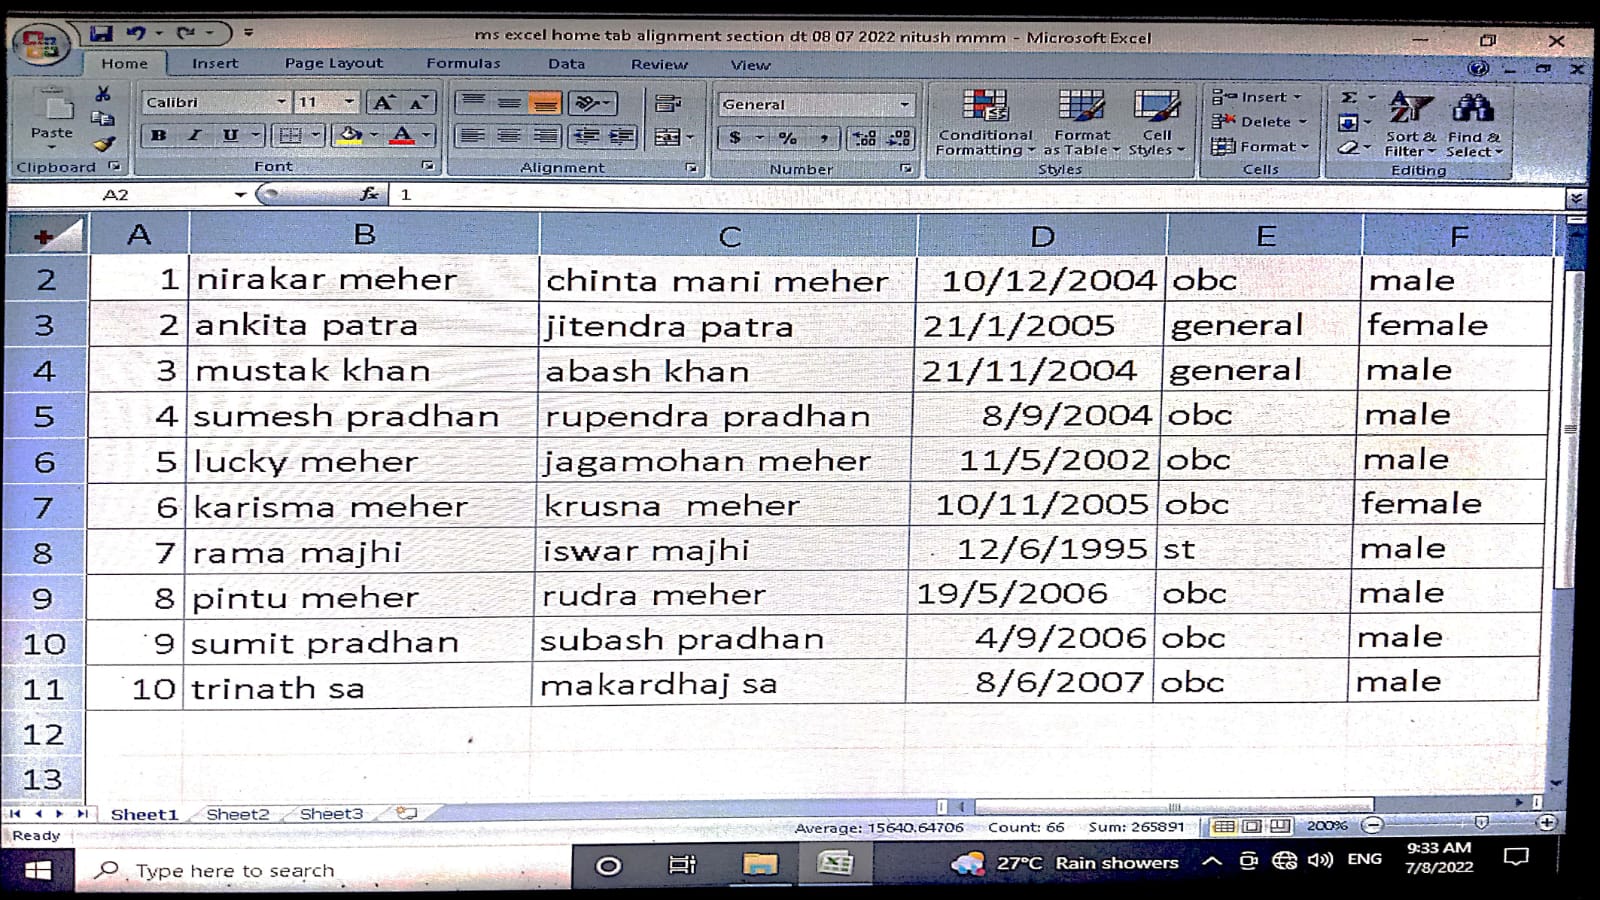 ms excel home tab alignment section dt 08 07 2022 nitush mmm - Microsoft Excel
Home Insert Page Layout Formulas Data Review View
Calibri 11 A A General Insert
Paste B I U A $ % , Conditional Formatting Format as Table Cell Styles Delete Sort & Filter Find & Select
Format
Clipboard Font Alignment Number Styles Cells Editing
A2 fx 1
A B C D E F
2 1 nirakar meher chinta mani meher 10/12/2004 obc male
3 2 ankita patra jitendra patra 21/1/2005 general female
4 3 mustak khan abash khan 21/11/2004 general male
5 4 sumesh pradhan rupendra pradhan 8/9/2004 obc male
6 5 lucky meher jagamohan meher 11/5/2002 obc male
7 6 karisma meher krusna  meher 10/11/2005 obc female
8 7 rama majhi iswar majhi 12/6/1995 st male
9 8 pintu meher rudra meher 19/5/2006 obc male
10 9 sumit pradhan subash pradhan 4/9/2006 obc male
11 10 trinath sa makardhaj sa 8/6/2007 obc male
12
13
Sheet1 Sheet2 Sheet3
Ready Average: 15640.64706 Count: 66 Sum: 265891 200%
Type here to search 27°C Rain showers ENG 9:33 AM
7/8/2022